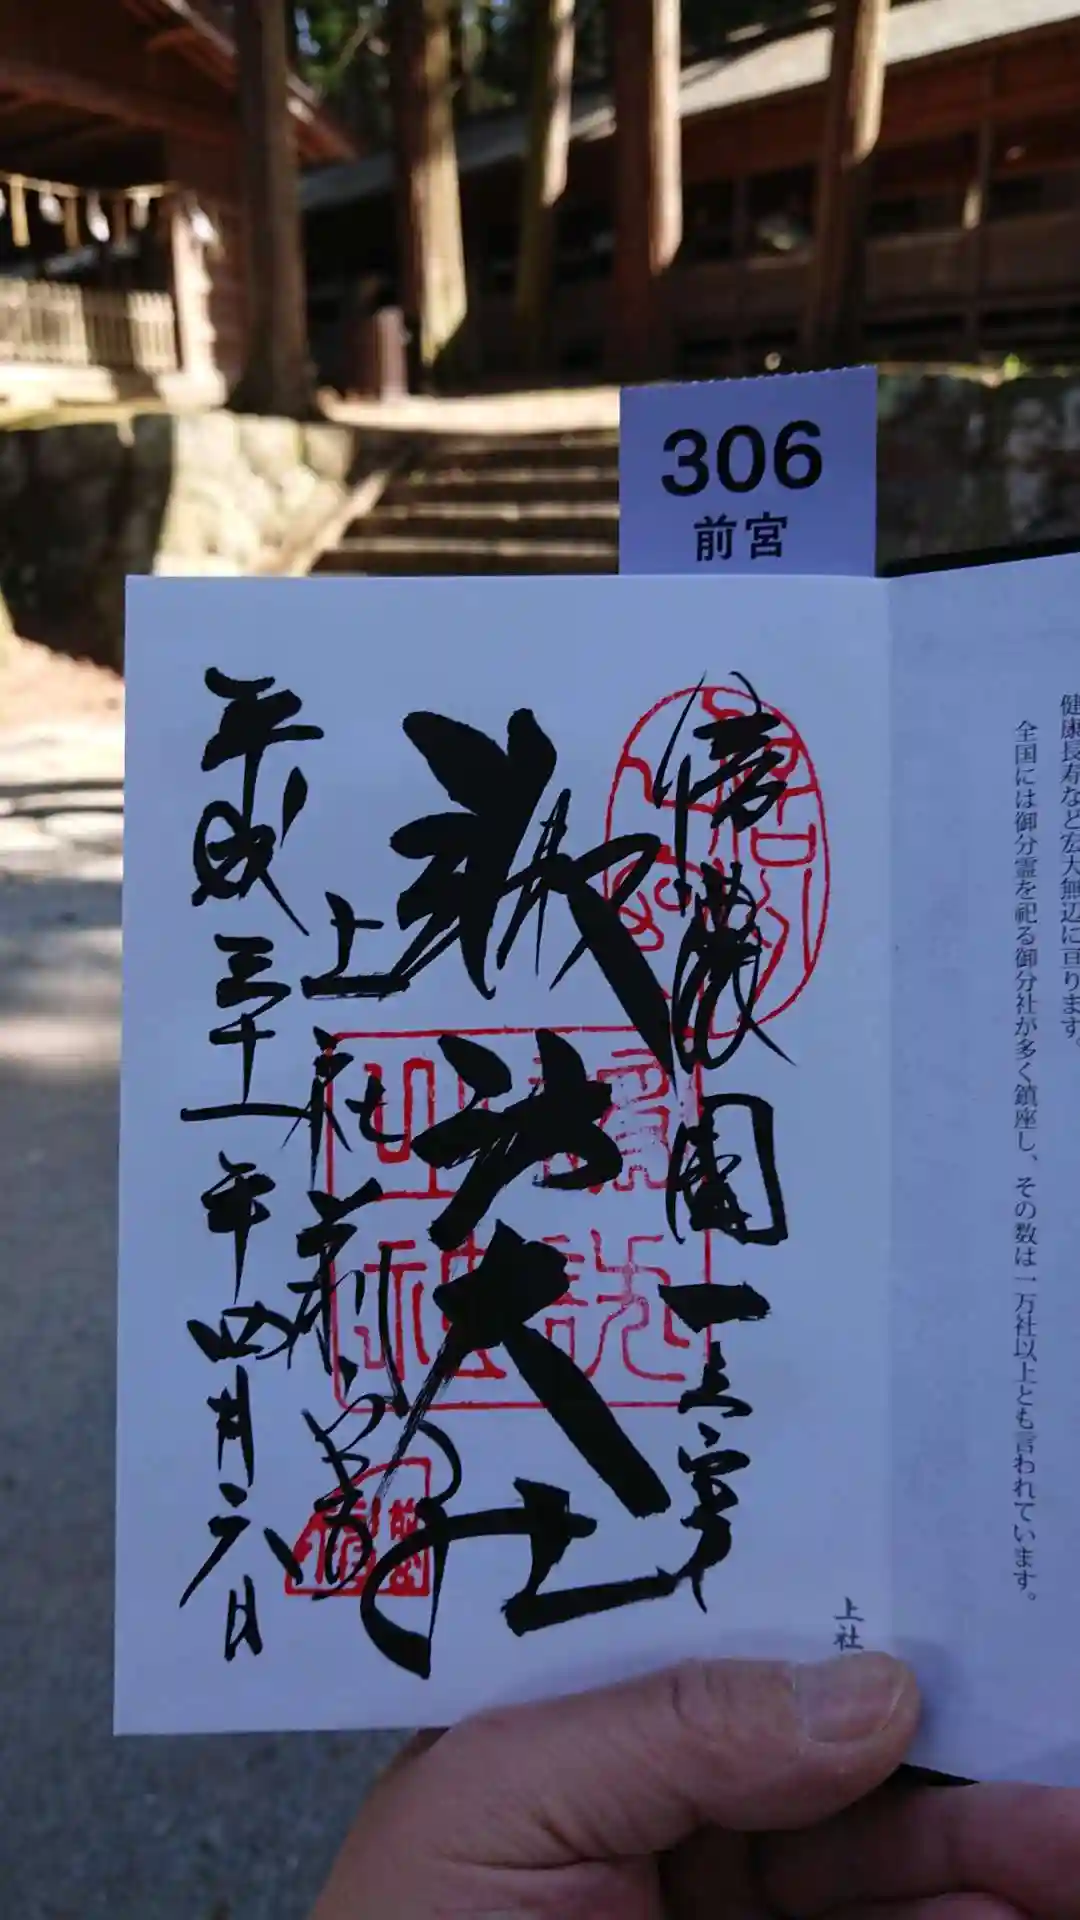 306
前宮
健康長寿など宏大無辺に亘ります。
全国には御分霊を祀る御分社が多く鎮座し、その数は一万社以上とも言われています。
上社
信濃國一之宮
諏訪大社
上社前宮
平成三十一年四月六日